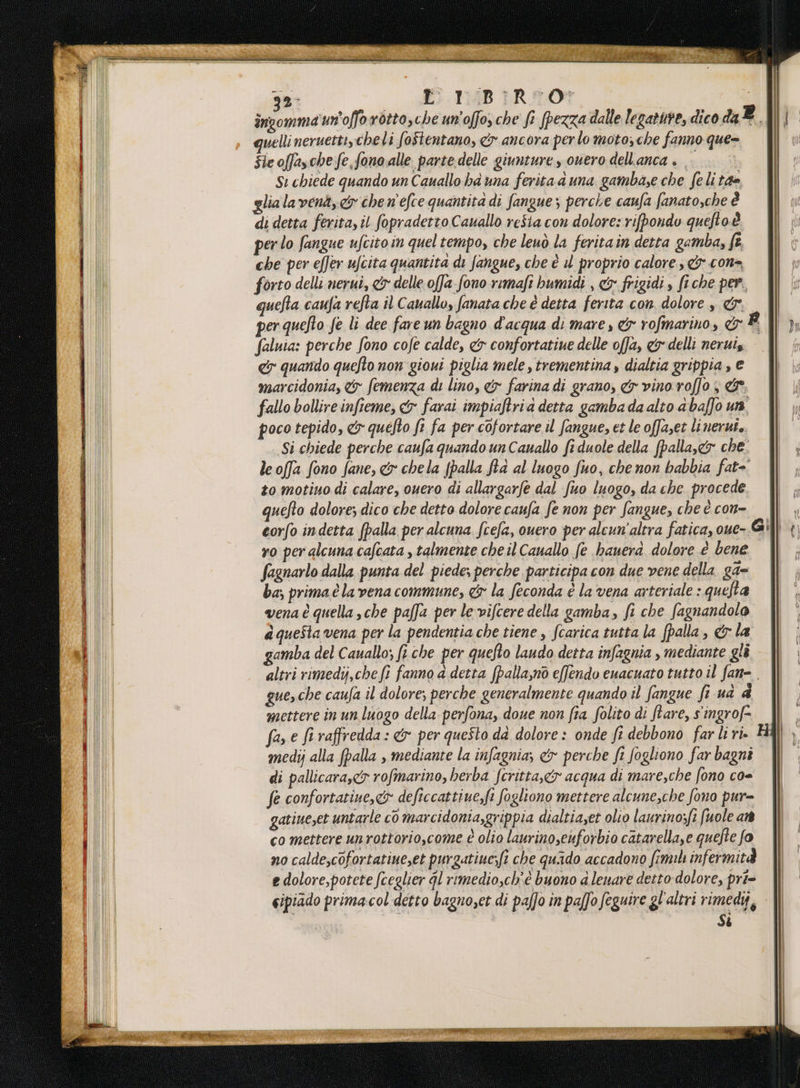 32 LIBRO
ingomma un'osso rotto, che un'osso, che si spezza dalle legature, dico da
quelli neruetti, che li sostentano, & ancora per lo moto, che fanno que=
ste ossa, che se sono alle parte delle giunture, ouero dell anca.
Si chiede quando un Cauallo hà una ferita à una gamba, e che se li ta=
glia la vena, & che n'esce quantità di sangue; perche causa sanato, che è
di detta ferita, il sopradetto Cauallo resta con dolore: rispondo questo è
per lo sangue uscito in quel tempo, che leuò la ferita in detta gamba, si
che per esser uscita quantità di sangue, che è il proprio calore, & con=
forto delli nerui, & delle ossa sono rimasi humidi, & frigidi, si che per
questa causa resta il Cauallo, sanata che è detta ferita con dolore, &
per questo se li dee fare un bagno d'acqua di mare, & rosmarino, &
saluia: perche sono cose calde, & confortatiue delle ossa, & delli nerui,
& quando questo non gioui piglia mele, trementina, dialtia grippia, e
marcidonia, & semenza di lino, & farina di grano, & vino rosso; &
fallo bollire insieme, & farai impiastri à detta gamba da alto à basso un
poco tepido, & questo si fa per cõfortare il sangue, et le ossa, et li nerui.
Si chiede perche causa quando un Cauallo si duole della spalla, & che
le ossa sono sane, & che la spalla stà al luogo suo, che non habbia fat=
to motiuo di calare, ouero di allargarse dal suo luogo, da che procede
questo dolore; dico che detto dolore causa se non per sangue, che è con=
corso in detta spalla per alcuna scesa, ouero per alcun'altra fatica, oue-
ro per alcuna cascata, talmente che il Cauallo se hauerà dolore è bene
sagnarlo dalla punta del piede; perche participa con due vene della gã=
ba; prima è la vena commune, & la seconda è la vena arteriale: questa
vena è quella, che passa per le viscere della gamba, si che sagnandolo
à questa vena per la pendentia che tiene, scarica tutta la spalla, & la
gamba del Cauallo; si che per questo laudo detta insagnia, mediante gli
altri rimedij, che si fanno à detta spalla, nõ essendo euacuato tutto il san=
gue, che causa il dolore; perche generalmente quando il sangue si uà à
mettere in un luogo della persona, doue non sia solito di stare, s'ingros-
sa, e si raffredda: & per questo dà dolore: onde si debbono far li ri-
medij alla spalla, mediante la insagnia; & perche si sogliono far bagni
di pallicara, & rosmarino, herba scritta, & acqua di mare, che sono co=
se confortatiue, & desiccattiue, si sogliono mettere alcune, che sono pur=
gatiue, et untarle cõ marcidonia, grippia dialtia, et olio laurino; si suole an
co mettere un rottorio, come è olio laurino, euforbio cãtarella, e queste so
no calde, cõfortatiue, et purgatiue; si che quãdo accadono simili infermità
e dolore, potete sceglier ql rimedio, ch'è buono à leuare detto dolore, prĩ=
cipiãdo prima col detto bagno, et di passo in passo seguire gl'altri rimedij,
Si